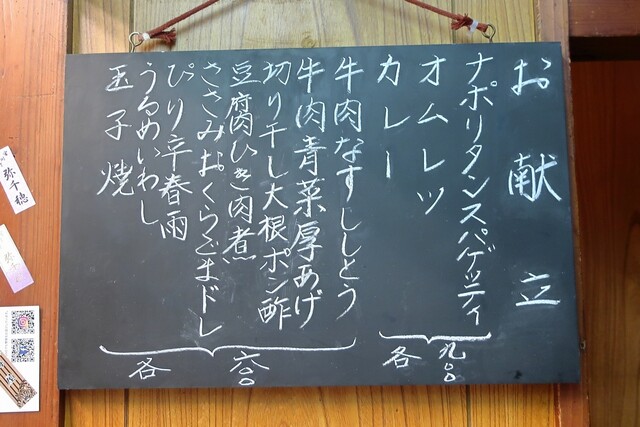 お献立
ナポリタンスパゲッティ
オムレツ
カレー
各九〇〇
牛肉なすししとう
牛肉青菜厚あげ
切り干し大根ポン酢
豆腐ひき肉煮
ささみおくらごまドレ
ぴり辛春雨
うるめいわし
玉子焼
各六〇〇
弥千穂